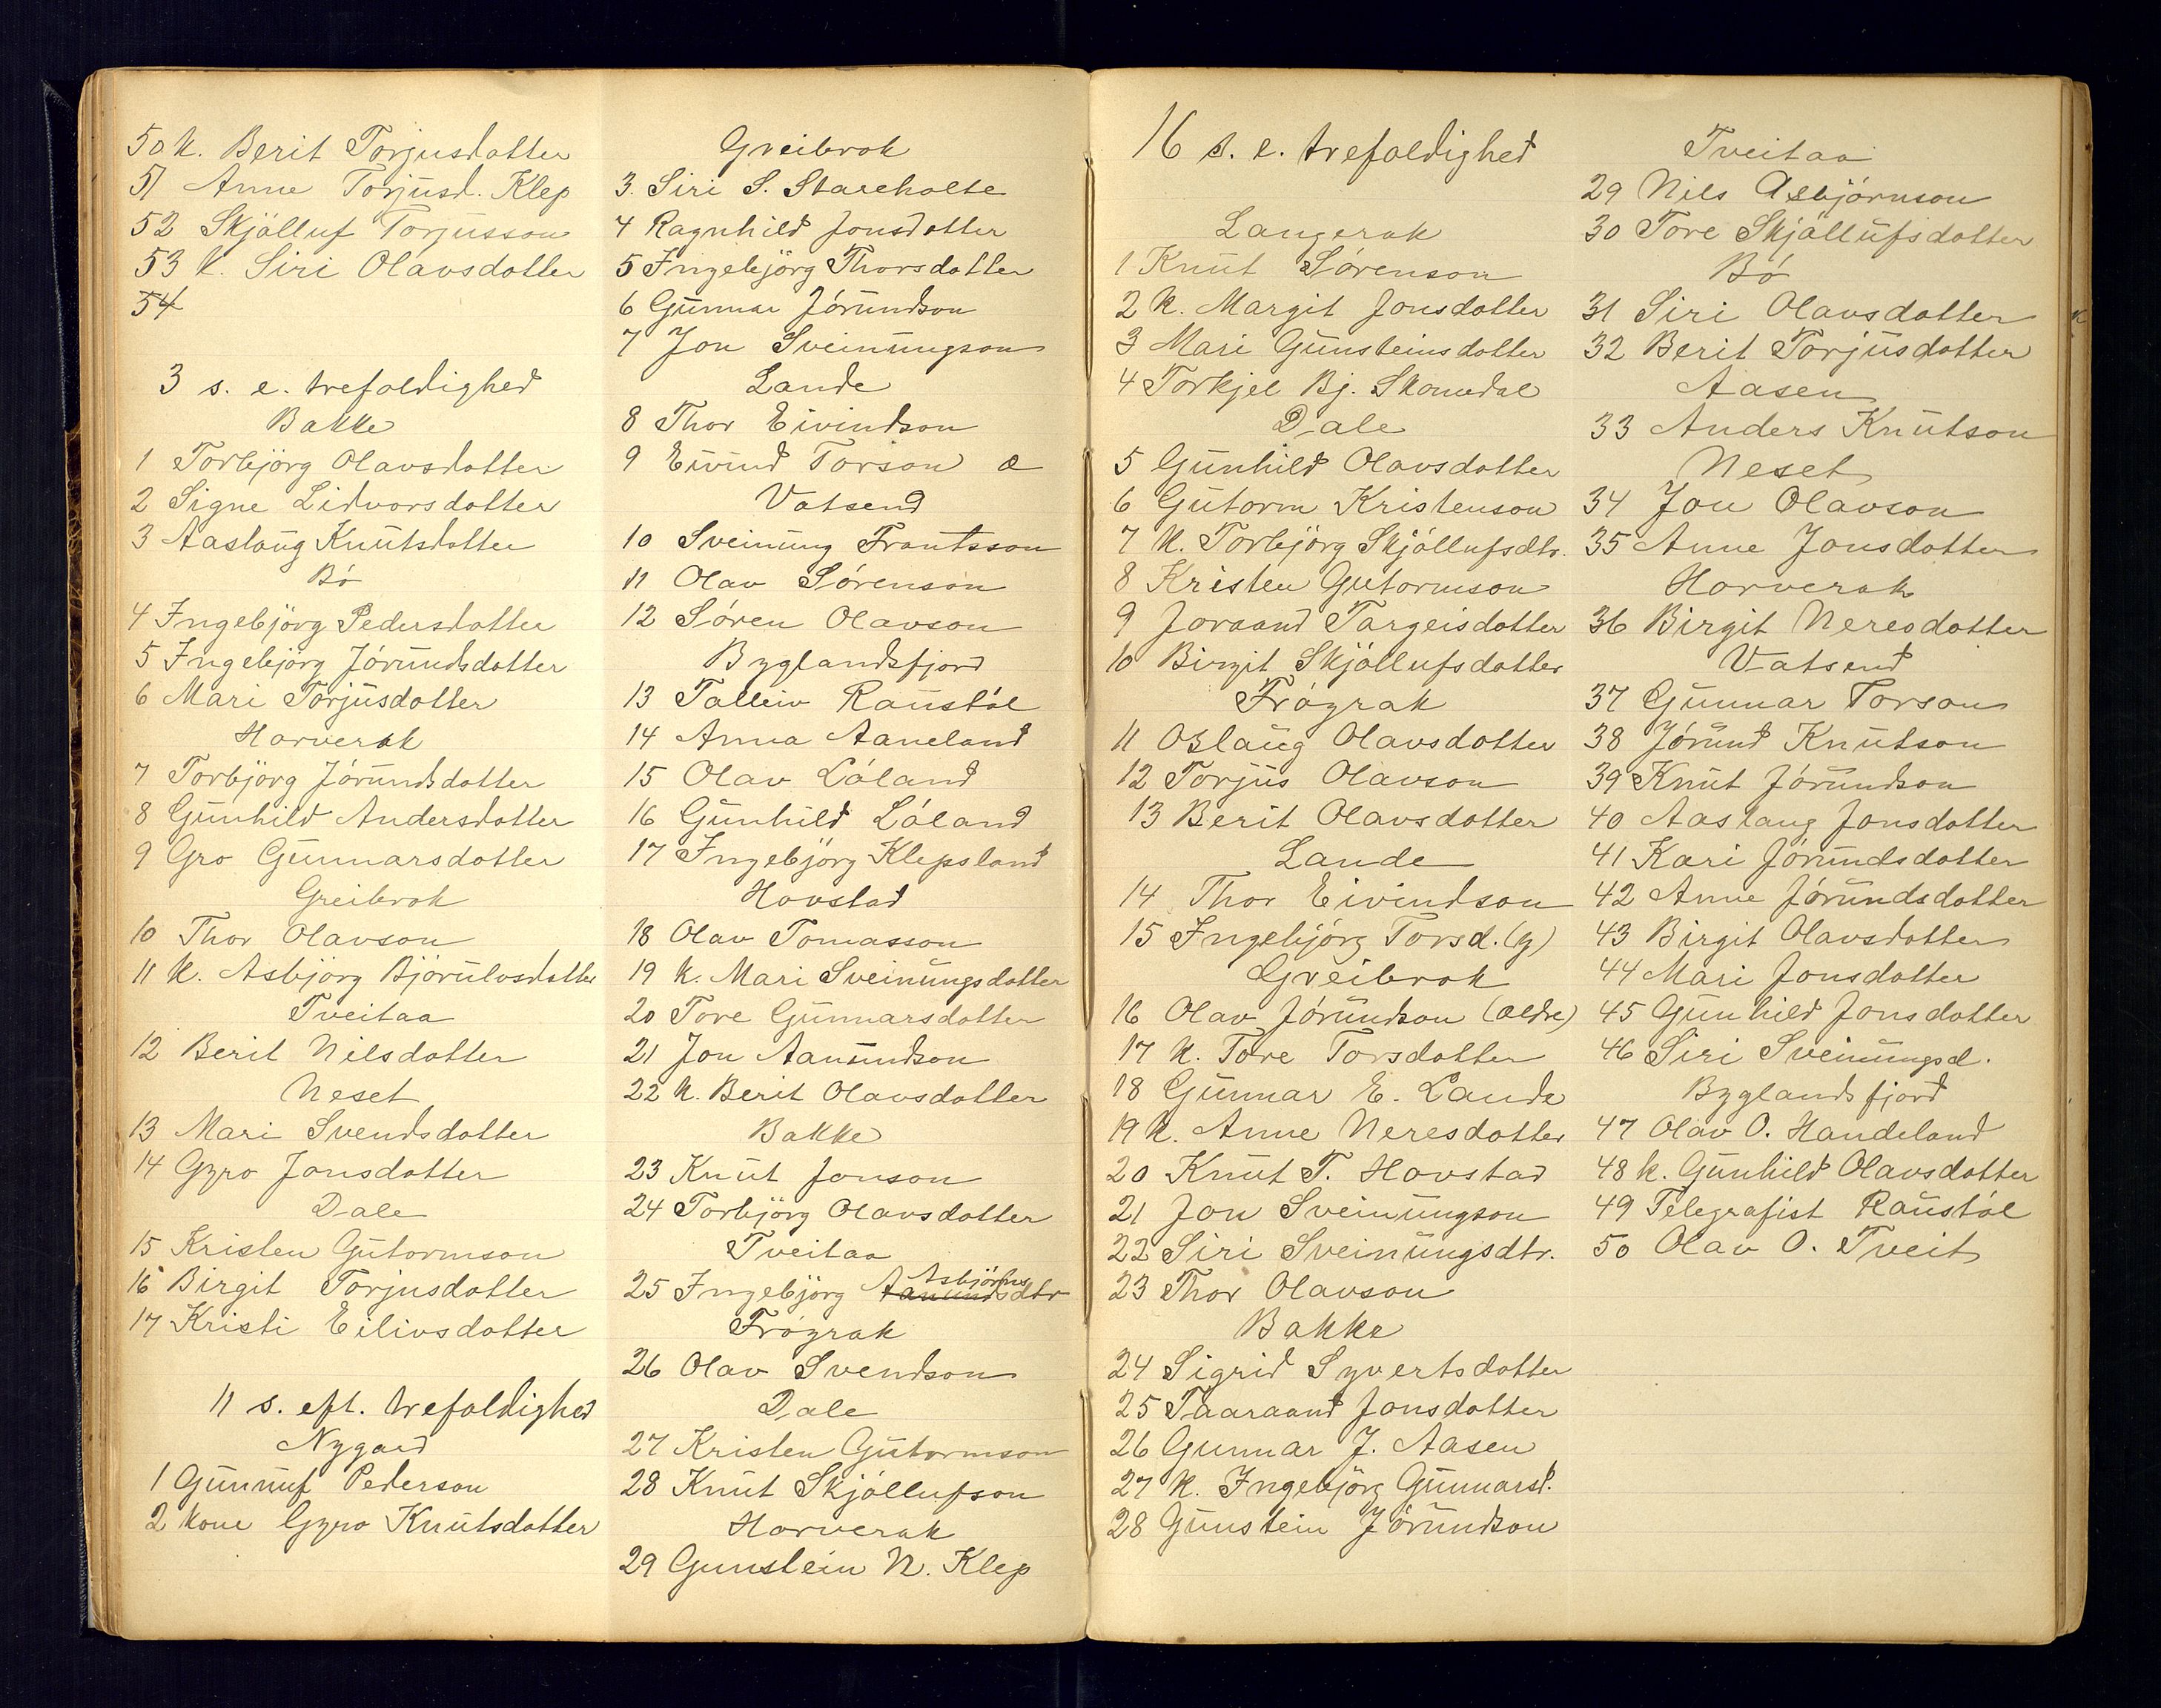 50 K. Berit Torjusdotter
51 Anne Torjusd. Klep
52 Skjölluf Torjusson
53 K. Siri Olavsdotter
54
3 s. e. trefoldighed
Bakke
1 Torbjörg Olavsdotter
2 Signe Lidvorsdotter
3 Aaslaug Knutsdotter
Bó
4 Ingebjörg Pedersdotter
5 Ingebjörg Jórundsdotter
6 Mari Torjusdotter
Horverak
7 Torbjörg Jórundsdotter
8 Gunhild Andersdotter
9 Gro Gunnarsdotter
Greibrok
10 Thor Olavson
11 K. Asbjörg Björulvsdotter
Tveitaa
12 Berit Nilsdotter
Neset
13 Mari Svendsdotter
14 Gyro Jonsdotter
Dale
15 Kristen Gutormson
16 Birgit Torjusdotter
17 Kristi Eilivsdotter
11 s. eft. trefoldighed
Nygard
1 Gunnuf Pederson
2 Kone Gyro Knutsdotter
Greibrok
3. Siri S. Stareholte
4 Ragnhild Jonsdotter
5 Ingebjörg Thorsdotter
6 Gunnar Jórundson
7 Jon Sveinungson
Lande
8 Thor Eivindson
9 Eivind Torson æ
Vatsend
10 Sveinung Frantsson
11 Olav Sórenson
12 Sóren Olavson
Byglandsfjord
13 Talleiv Raustól
14 Anna Aaneland
15 Olav Lóland
16 Gunhild Lóland
17 Ingebjörg Klepsland
Hovstad
18 Olav Tomasson
19 K. Mari Sveinungsdotter
20 Tore Gunnarsdotter
21 Jon Aanundson
22 K. Berit Olavsdotter
Bakke
23 Knut Jonson
24 Torbjörg Olavsdotter
Tveitaa
25 Ingebjörg Aanundsdtr Asbjörns
Frógrak
26 Olav Svendson
Dale
27 Kristen Gutormson
28 Knut Skjóllufson
Horverak
29 Gunstein N. Klep
16 s. e. trefoldighed
Langerak
1 Knut Sórenson
2 K. Margit Jonsdotter
3 Mari Gunsteinsdotter
4 Torkjel Bj. Skomedal
Dale
5 Gunhild Olavsdotter
6 Gutorm Kristenson
7 K. Torbjörg Skjóllufsdtr.
8 Kristen Gutormson
9 Joraand Targeisdotter
10 Birgit Skjöllufsdotter
Frógrak
11 Oslaug Olavsdotter
12 Torjus Olavson
13 Berit Olavsdotter
Lande
14 Thor Eivindson
15 Ingebjörg Torsd. (y)
Greibrok
16 Olav Jórundson (ældre)
17 K. Tore Torsdotter
18 Gunnar E. Lande
19 K. Anne Neresdotter
20 Knut T. Hovstad
21 Jon Sveinungson
22 Siri Sveinungsdtr.
23 Thor Olavson
Bakke
24 Sigrid Syvertsdotter
25 Taaraand Jonsdotter
26 Gunnar J. Aasen
27 K. Ingebjörg Gunnarsd.
28 Gunstein Jórundson
Tveitaa
29 Nils Asbjórnson
30 Tore Skjöllufsdotter
Bó
31 Siri Olavsdotter
32 Berit Torjusdotter
Aasen
33 Anders Knutson
Neset
34 Jon Olavson
35 Anne Jonsdotter
Horverak
36 Birgit Neresdotter
Vatsend
37 Gunnar Torson
38 Jórund Knutson
39 Knut Jórundson
40 Aaslaug Jonsdotter
41 Kari Jórundsdotter
42 Anne Jórundsdotter
43 Birgit Olavsdotter
44 Mari Jonsdotter
45 Gunhild Jonsdotter
46 Siri Sveinungsd.
Byglandsfjord
47 Olav O. Handeland
48 K. Gunhild Olavsdotter
49 Telegrafist Raustól
50 Olav O. Tveit